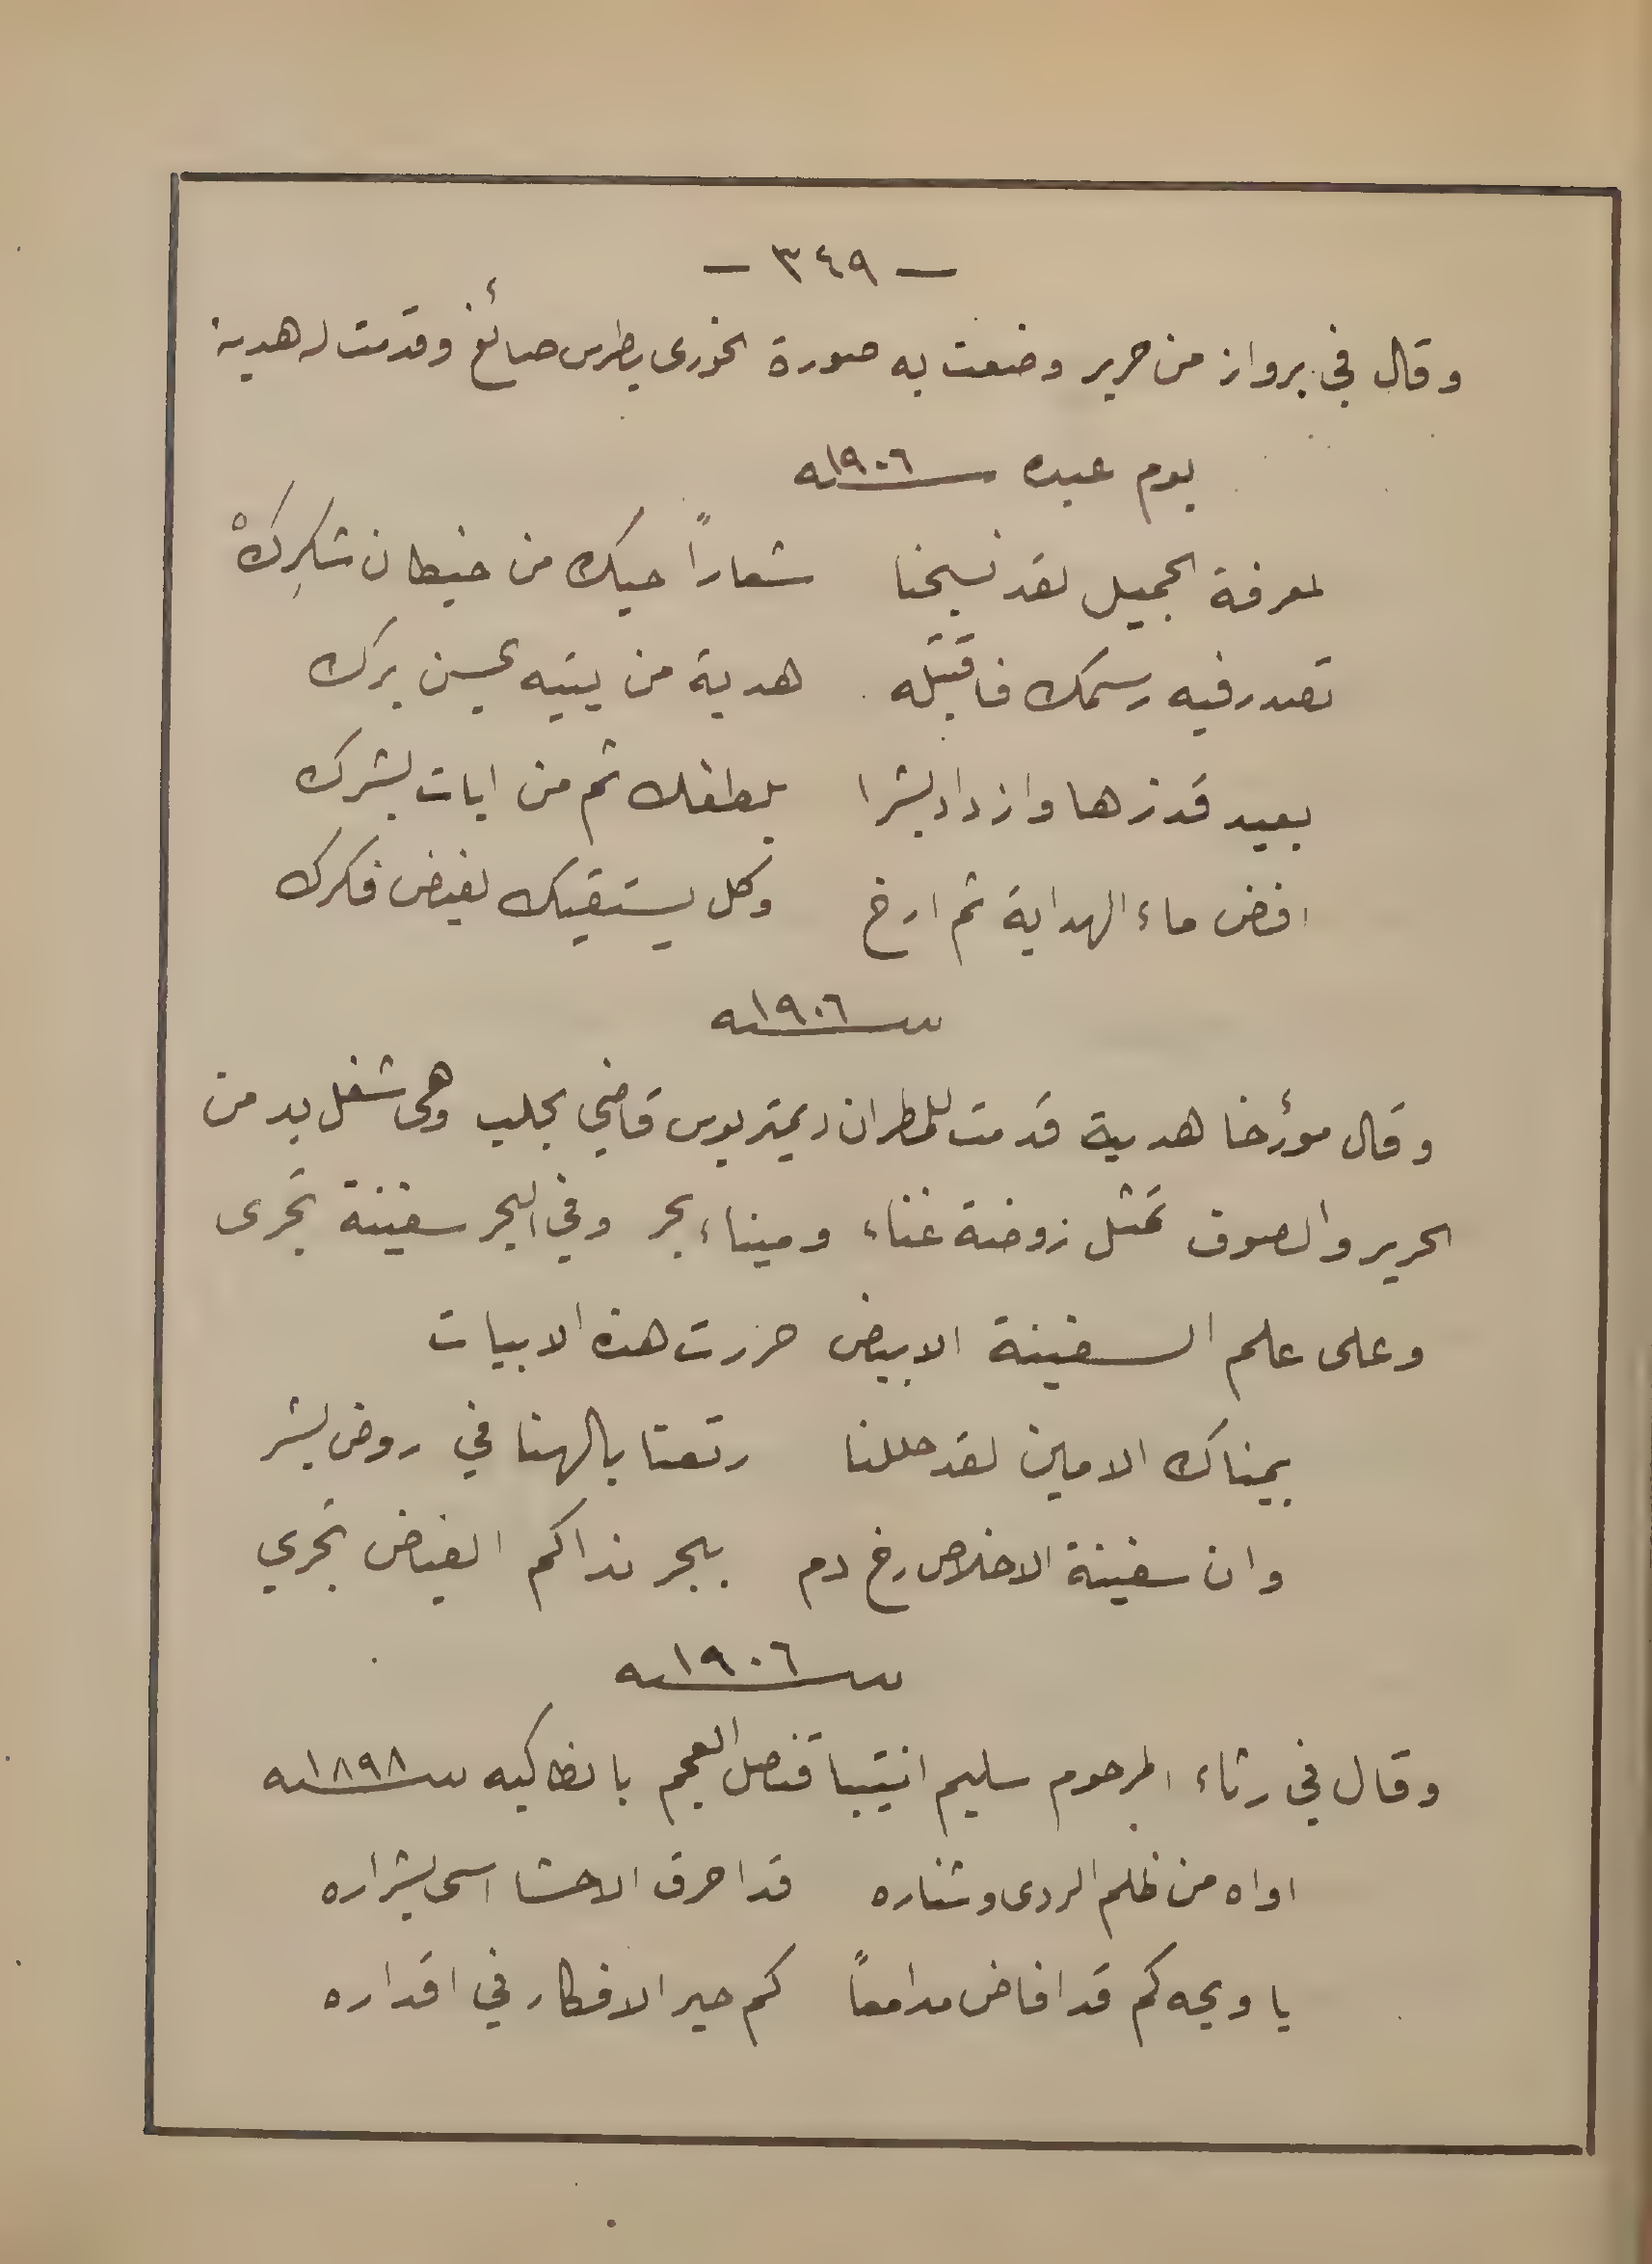 — ٣٤٩ —
وقال في برواز من حرير وضعت به صورة الخوري بطرس صائغ وقدمت له هدية
يوم عيده سنة ١٩٠٦
لمعرفة الجميل لقد نسجنا شعاراً حيك من خيطان شكرِكْ
تصدر فيه رسمك فاقتبله هدية من يتيه بحسن برك
بعيد قد زها وازداد بشرا بلطفك ثم من ايات بشرك
افض ماء الهداية ثم ارخ وكل يستقيك بفيض فكرك
سنة ١٩٠٦
وقال مؤرخا هدية قدمت للمطران ديمتريوس قاضي بحلب وهى شغل يد من
الحرير والصوف تمثل روضة غناء وميناء بحر وفي البحر سفينة تجرى
وعلى علم السفينة الابيض حررت هذه الابيات
بميناك الامين لقد حللنا رتعنا بالهنا في روض بشر
وان سفينة الاخلاص رخ دم ببحر نداكم الفياض تجري
سنة ١٩٠٦
وقال في رثاء المرحوم سليم انتيبا قنصل العجم بانطاكيه سنة ١٨٩٨
اواه من ظلم الردى وشناره قد احرق الاحشا اسى بشراره
يا ويحه كم قد افاض مدامعاً كم حير الافكار في اقداره